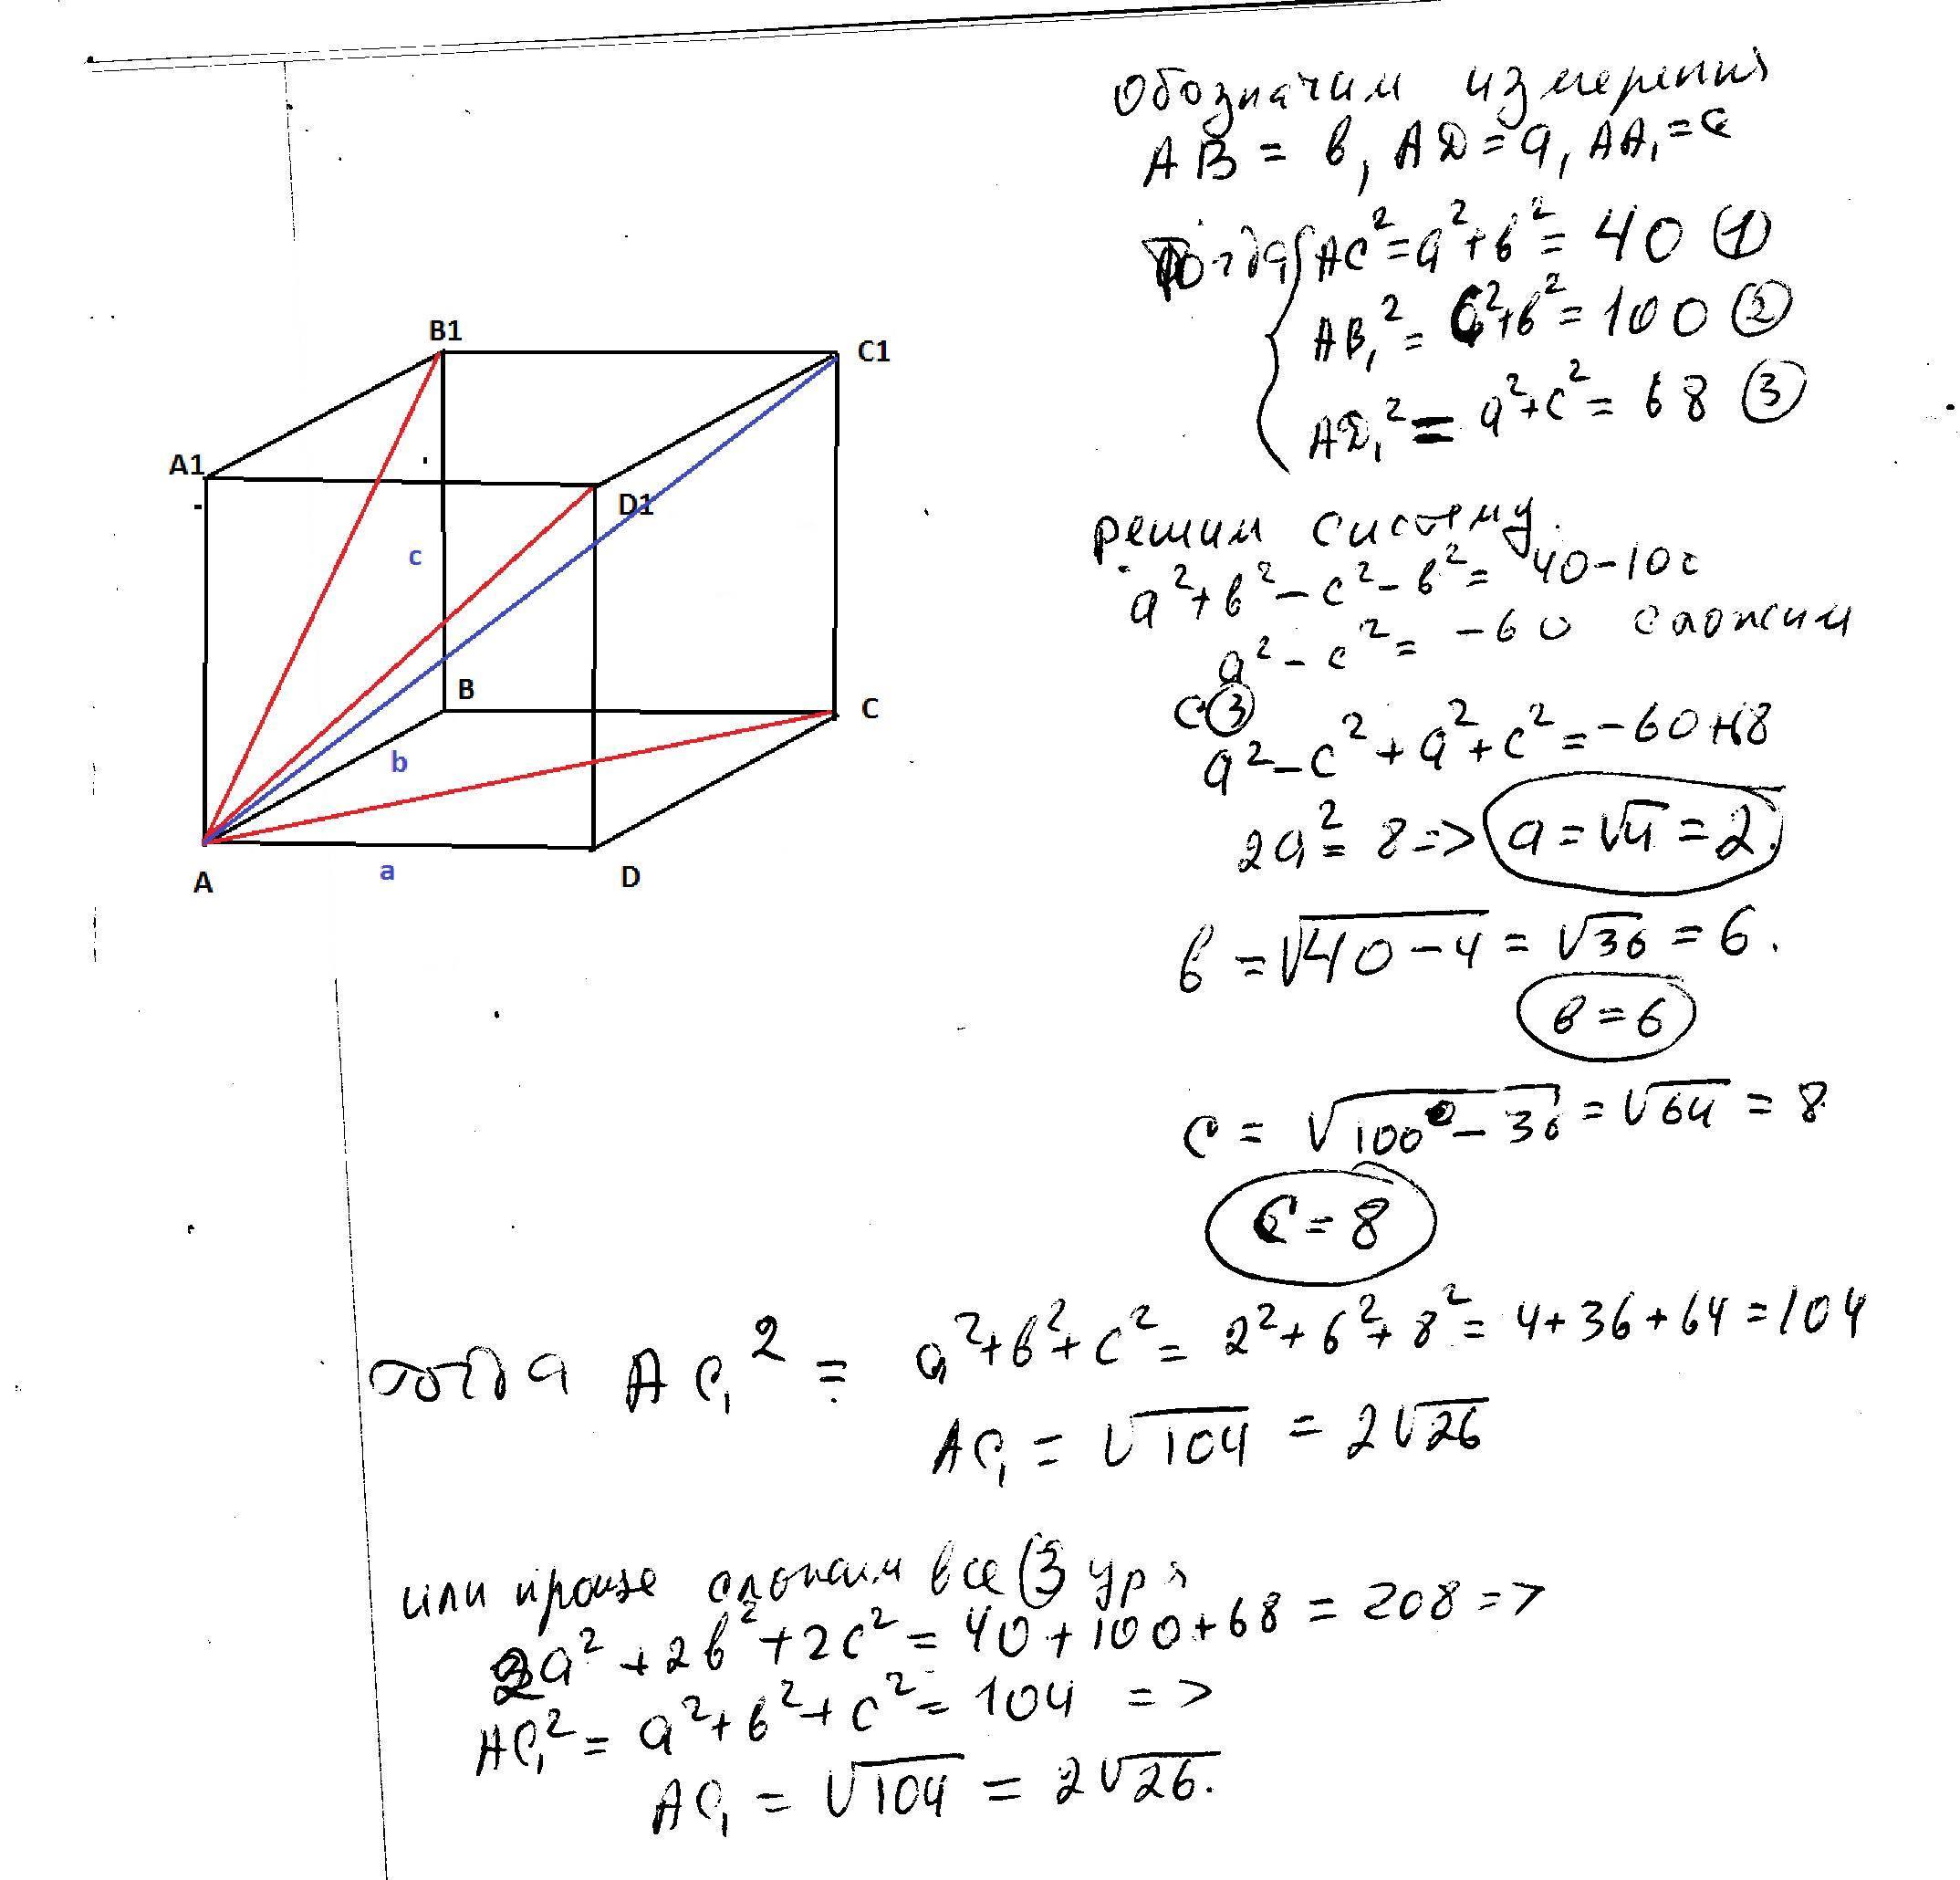 B1
C1
A1
D1
c
B
C
b
A
a
D
Обозначим измерения
AB = b, AD = a, AA₁ = c
Тогда { AC² = a² + b² = 40 ①
AB₁² = c² + b² = 100 ②
AD₁² = a² + c² = 68 ③
решим систему.
a² + b² - c² - b² = 40 - 100
a² - c² = -60 сложим
с ③
a² - c² + a² + c² = -60 + 68
2a² = 8 => a = √4 = 2.
b = √40 - 4 = √36 = 6.
b = 6
c = √100 - 36 = √64 = 8
c = 8
тогда AC₁² = a² + b² + c² = 2² + 6² + 8² = 4 + 36 + 64 = 104
AC₁ = √104 = 2√26
или проще сложим все 3 ур я
2a² + 2b² + 2c² = 40 + 100 + 68 = 208 =>
AC₁² = a² + b² + c² = 104 =>
AC₁ = √104 = 2√26.